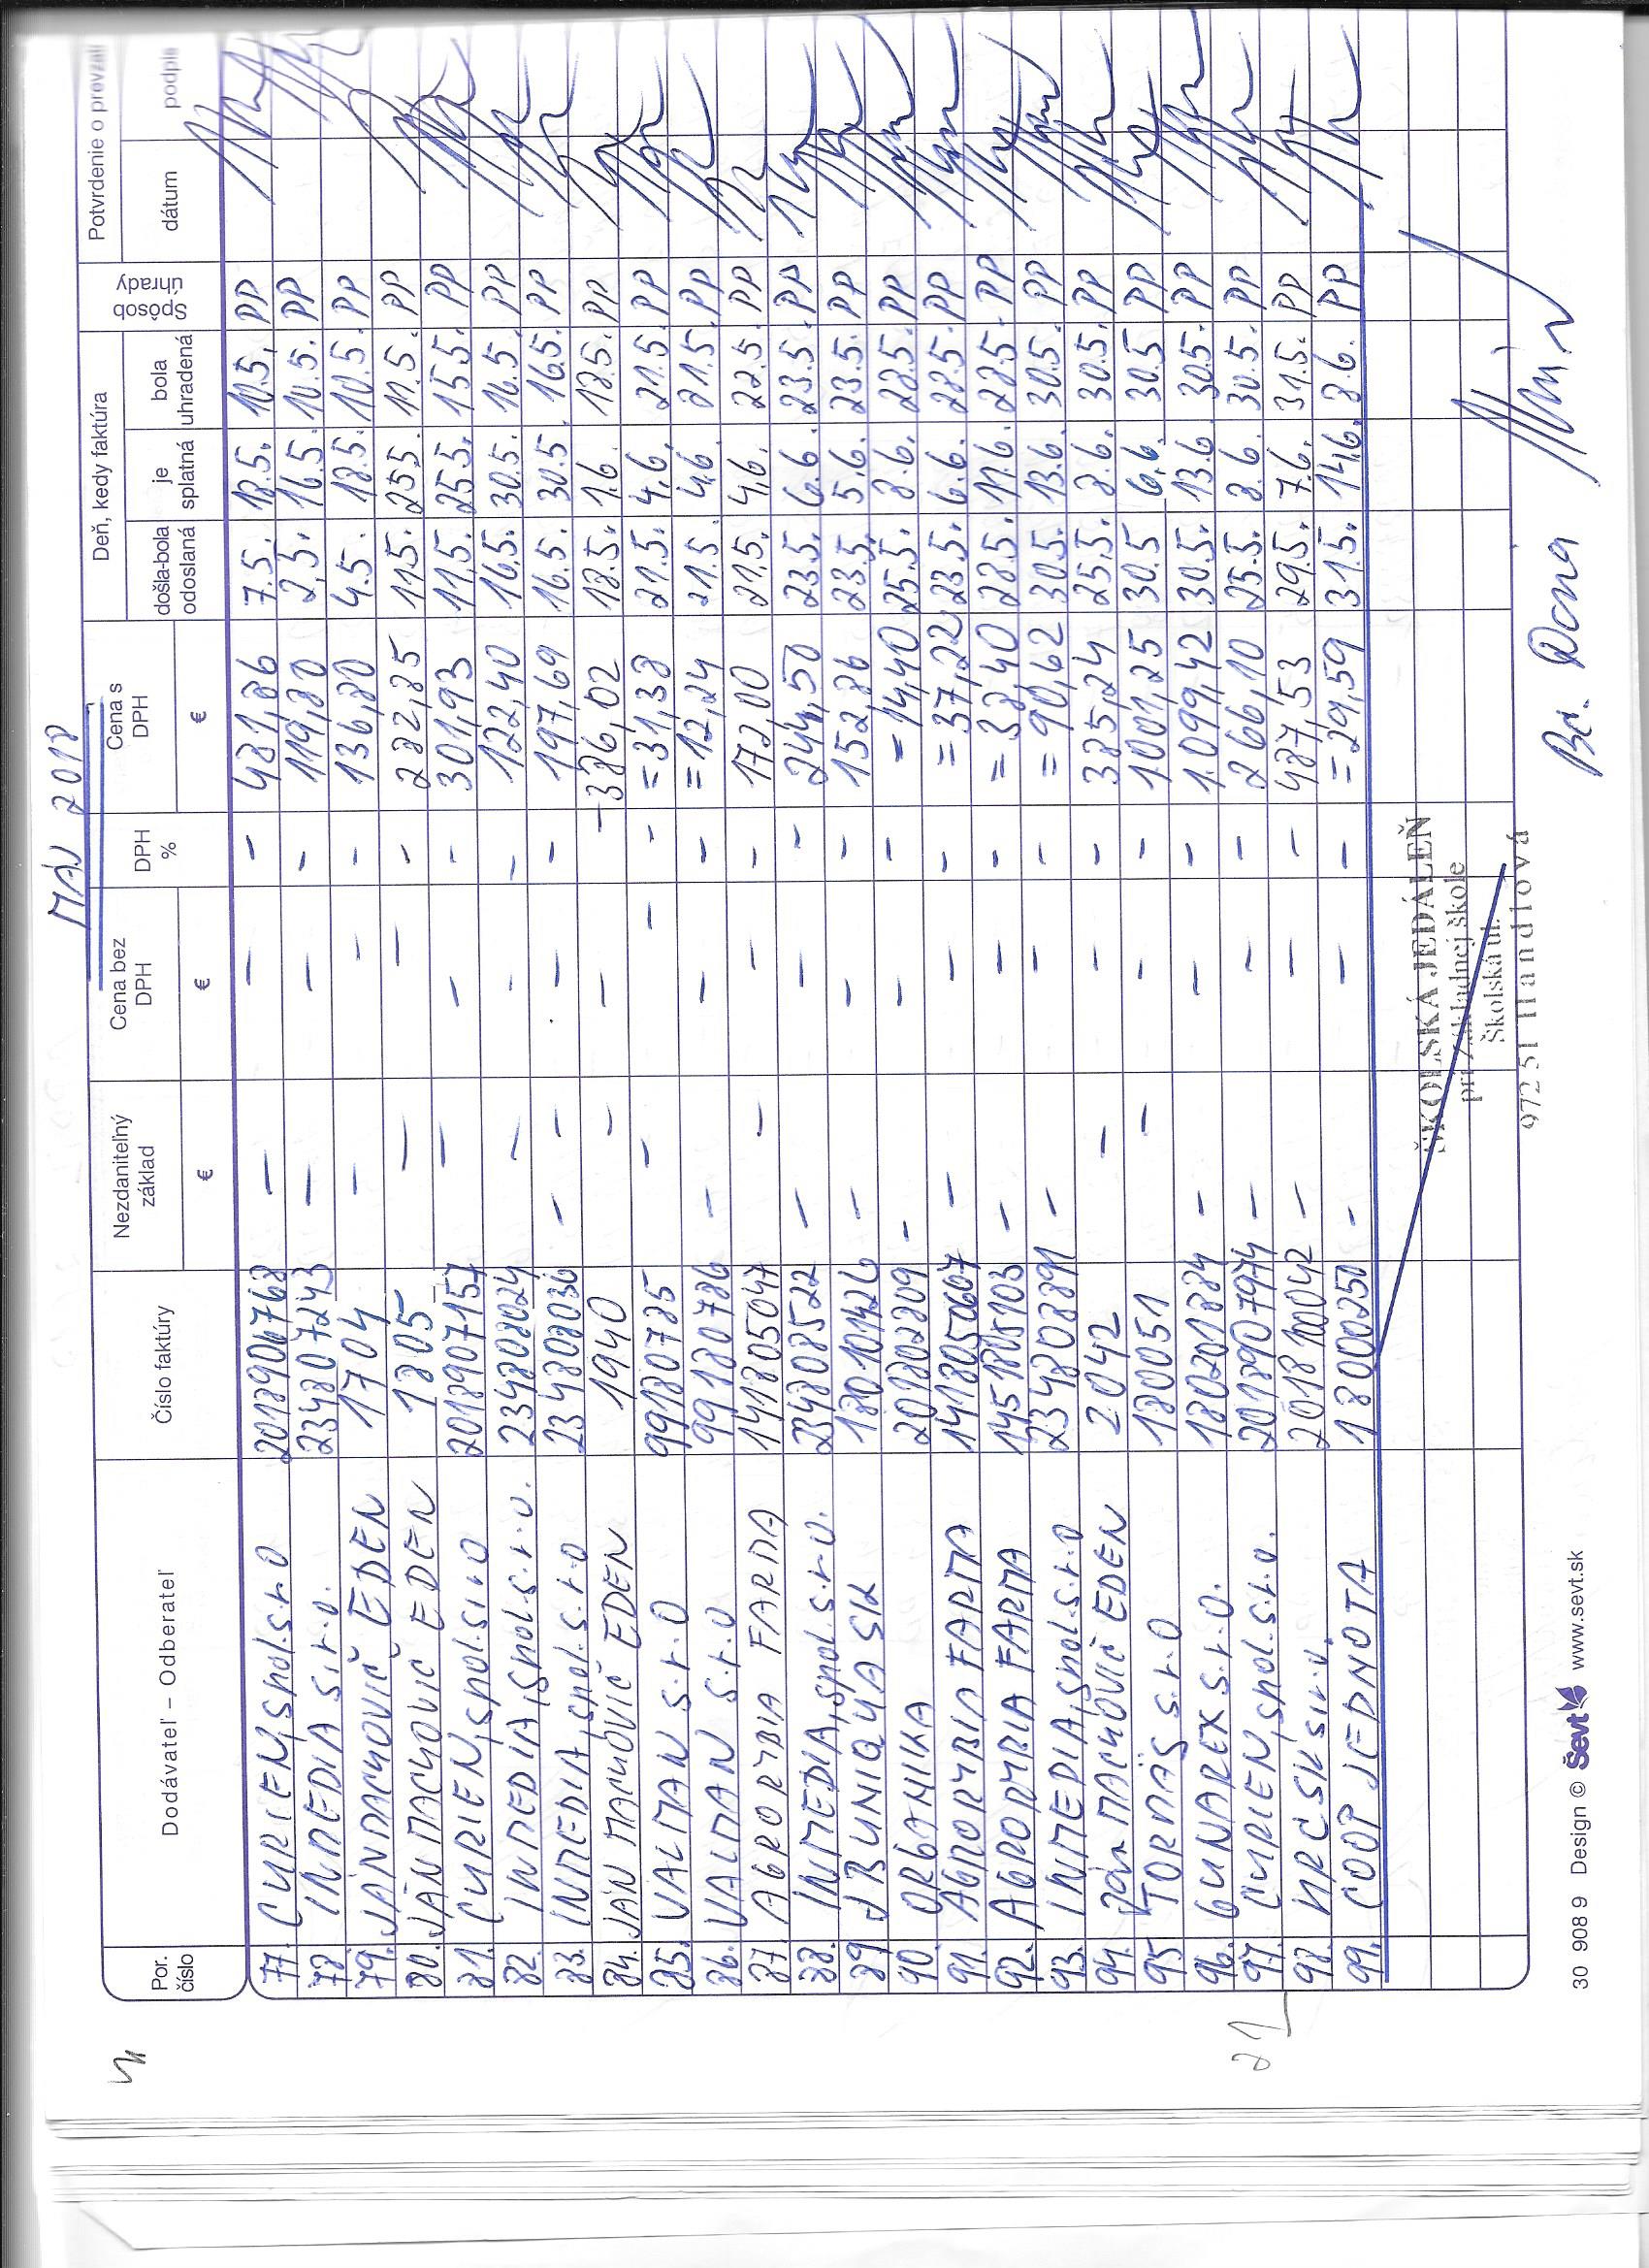 MÁJ 2018
Por. číslo Dodávateľ – Odberateľ Číslo faktúry Nezdaniteľný základ € Cena bez DPH € DPH % Cena s DPH € Deň, kedy faktúra došla-bola odoslaná je splatná bola uhradená Spôsob úhrady Potvrdenie o prevzatí dátum podpis
77. CURIEN, spol.s.r.o 2018906768 – – – 481,86 7.5. 18.5. 10.5. PP
78 INMEDIA s.r.o. 234807243 – – – 119,80 2.5. 16.5. 10.5. PP
79. JÁN MACHOVIČ EDEN 1704 – – – 136,80 4.5. 18.5. 10.5. PP
80. JÁN MACHOVIČ EDEN 1805 – – – 282,85 11.5. 25.5. 11.5. PP
81. CURIEN, spol.s.r.o 2018907157 – – – 301,93 11.5. 25.5. 15.5. PP
82. INMEDIA, spol.s.r.o. 234808024 – – – 122,40 16.5. 30.5. 16.5. PP
83. INMEDIA, spol.s.r.o 234808036 – – – 197,69 16.5. 30.5. 16.5. PP
84. JÁN MACHOVIČ EDEN 1940 – – – 386,02 18.5. 1.6. 18.5. PP
85. VALMAN s.r.o 99180785 – – – =31,38 21.5. 4.6. 21.5. PP
86. VALMAN s.r.o 99180786 – – – =12,24 21.5. 4.6. 21.5. PP
87. AGRORYBIA FARMA 141805047 – – – 172,00 21.5. 4.6. 22.5. PP
88. INMEDIA, spol.s.r.o. 234808522 – – – 244,50 23.5. 6.6. 23.5. PP
89 JBUNIQUA SK 180101426 – – – 152,86 23.5. 5.6. 23.5. PP
90. ORGANIKA 201802809 – – – =14,40 25.5. 8.6. 28.5. PP
91. AGRORYBIA FARMA – – – =37,22 23.5. 6.6. 28.5. PP
92. AGRORYBIA FARMA – – – =38,40 28.5. 11.6. 28.5. PP
93. INMEDIA, spol.s.r.o – – – =90,62 30.5. 13.6. 30.5. PP
94. Ján MACHOVIČ EDEN 2042 – – – 385,24 25.5. 8.6. 30.5. PP
95 TORMÄS s.r.o 180051 – – – 1001,25 30.5 6.6. 30.5 PP
96. GUNAREX s.r.o. 180201884 – – – 1.099,42 30.5. 13.6. 30.5. PP
97. CURIEN, spol.s.r.o. 2018907974 – – – 266,10 25.5. 8.6. 30.5. PP
98. HRČ SK s.r.o. – – – 487,53 29.5. 7.6. 31.5. PP
99. COOP JEDNOTA 18000250 – – – =29,59 31.5. 14.6. 8.6. PP
ŠKOLSKÁ JEDÁLEŇ
pri Základnej škole
Školská ul.
972 51 Handlová
30 908 9 Design © Ševt www.sevt.sk